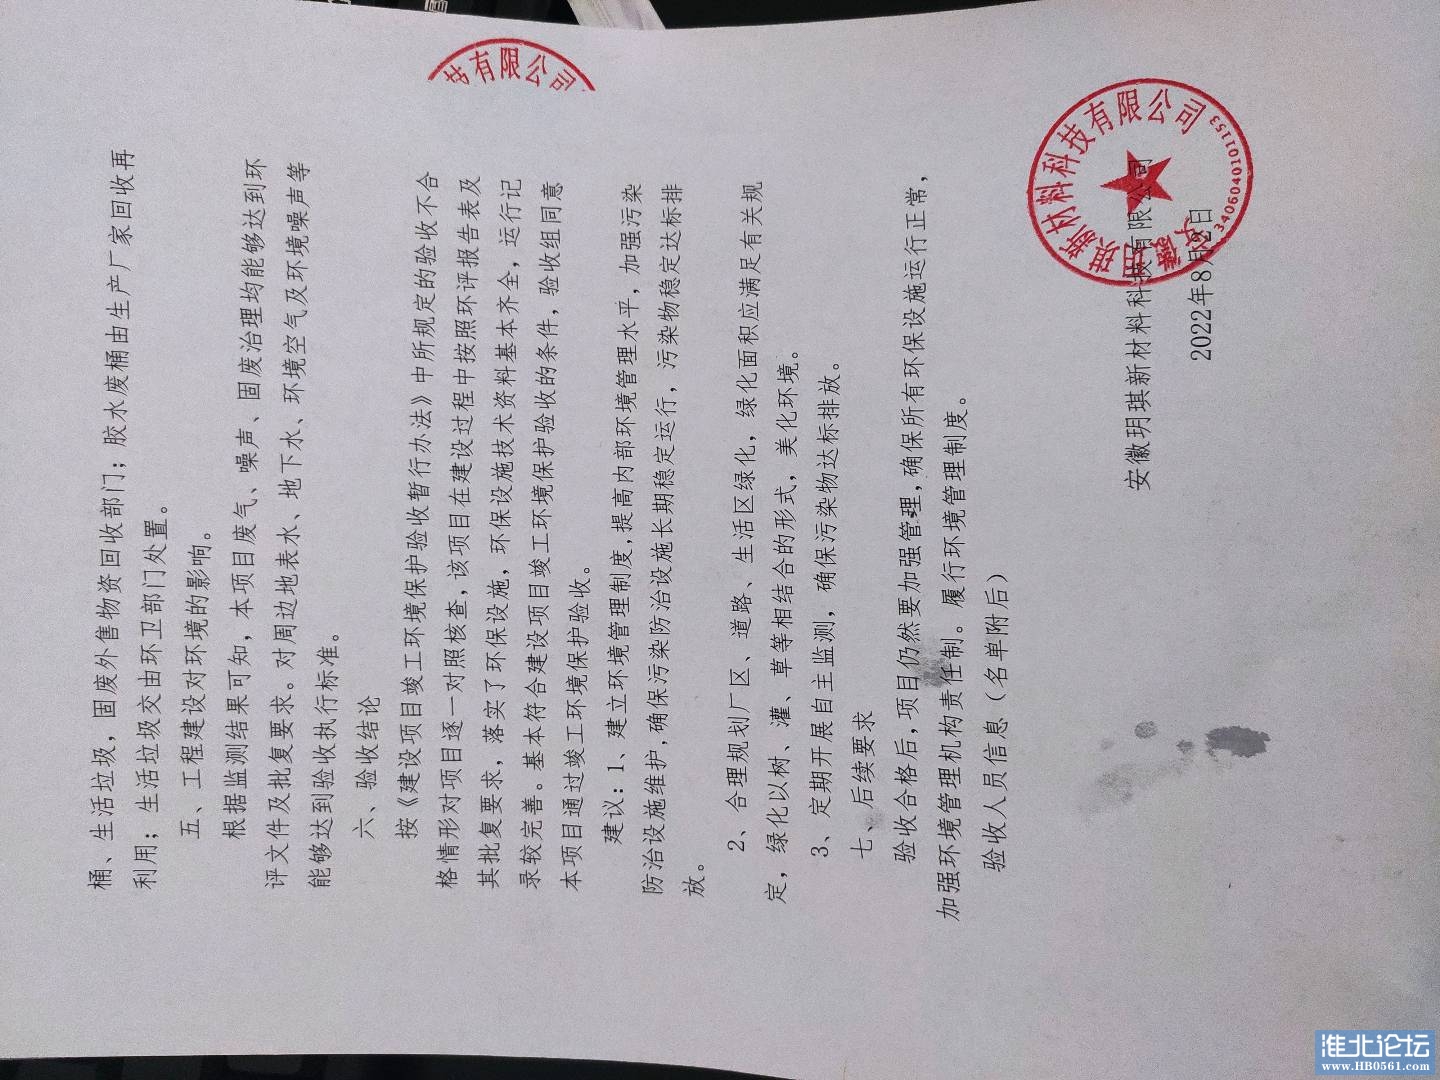 桶、生活垃圾，固废外售物资回收部门；胶水废桶由生产厂家回收再
利用；生活垃圾交由环卫部门处置。
五、工程建设对环境的影响。
根据监测结果可知，本项目废气、噪声、固废治理均能够达到环
评文件及批复要求。对周边地表水、地下水、环境空气及环境噪声等
能够达到验收执行标准。
六、验收结论
按《建设项目竣工环境保护验收暂行办法》中所规定的验收不合
格情形对项目逐一对照核查，该项目在建设过程中按照环评报告表及
其批复要求，落实了环保设施，环保设施技术资料基本齐全，运行记
录较完善。基本符合建设项目竣工环境保护验收的条件，验收组同意
本项目通过竣工环境保护验收。
建议：1、建立环境管理制度,提高内部环境管理水平，加强污染
防治设施维护,确保污染防治设施长期稳定运行，污染物稳定达标排
放。
2、合理规划厂区、道路、生活区绿化，绿化面积应满足有关规
定，绿化以树、灌、草等相结合的形式，美化环境。
3、定期开展自主监测，确保污染物达标排放。
七、后续要求
验收合格后，项目仍然要加强管理,确保所有环保设施运行正常，
加强环境管理机构责任制。履行环境管理制度。
验收人员信息（名单附后）
安徽玥琪新材料科技有限公司
2022年8月2日
技有限公司
安徽玥琪新材料科技有限公司
3406040101153
淮北论坛
www.HB0561.com